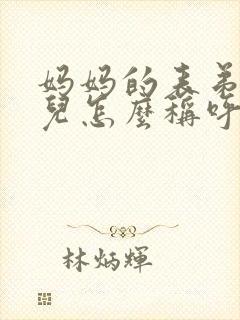 妈妈的表弟
兒怎麼稱呼
林炳輝